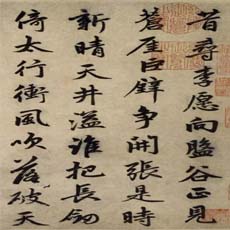 昔尋李愿向盤谷正見
蒼崖巨壁爭開張是時
新晴天井溢誰把長劍
倚太行衝風吹落破天